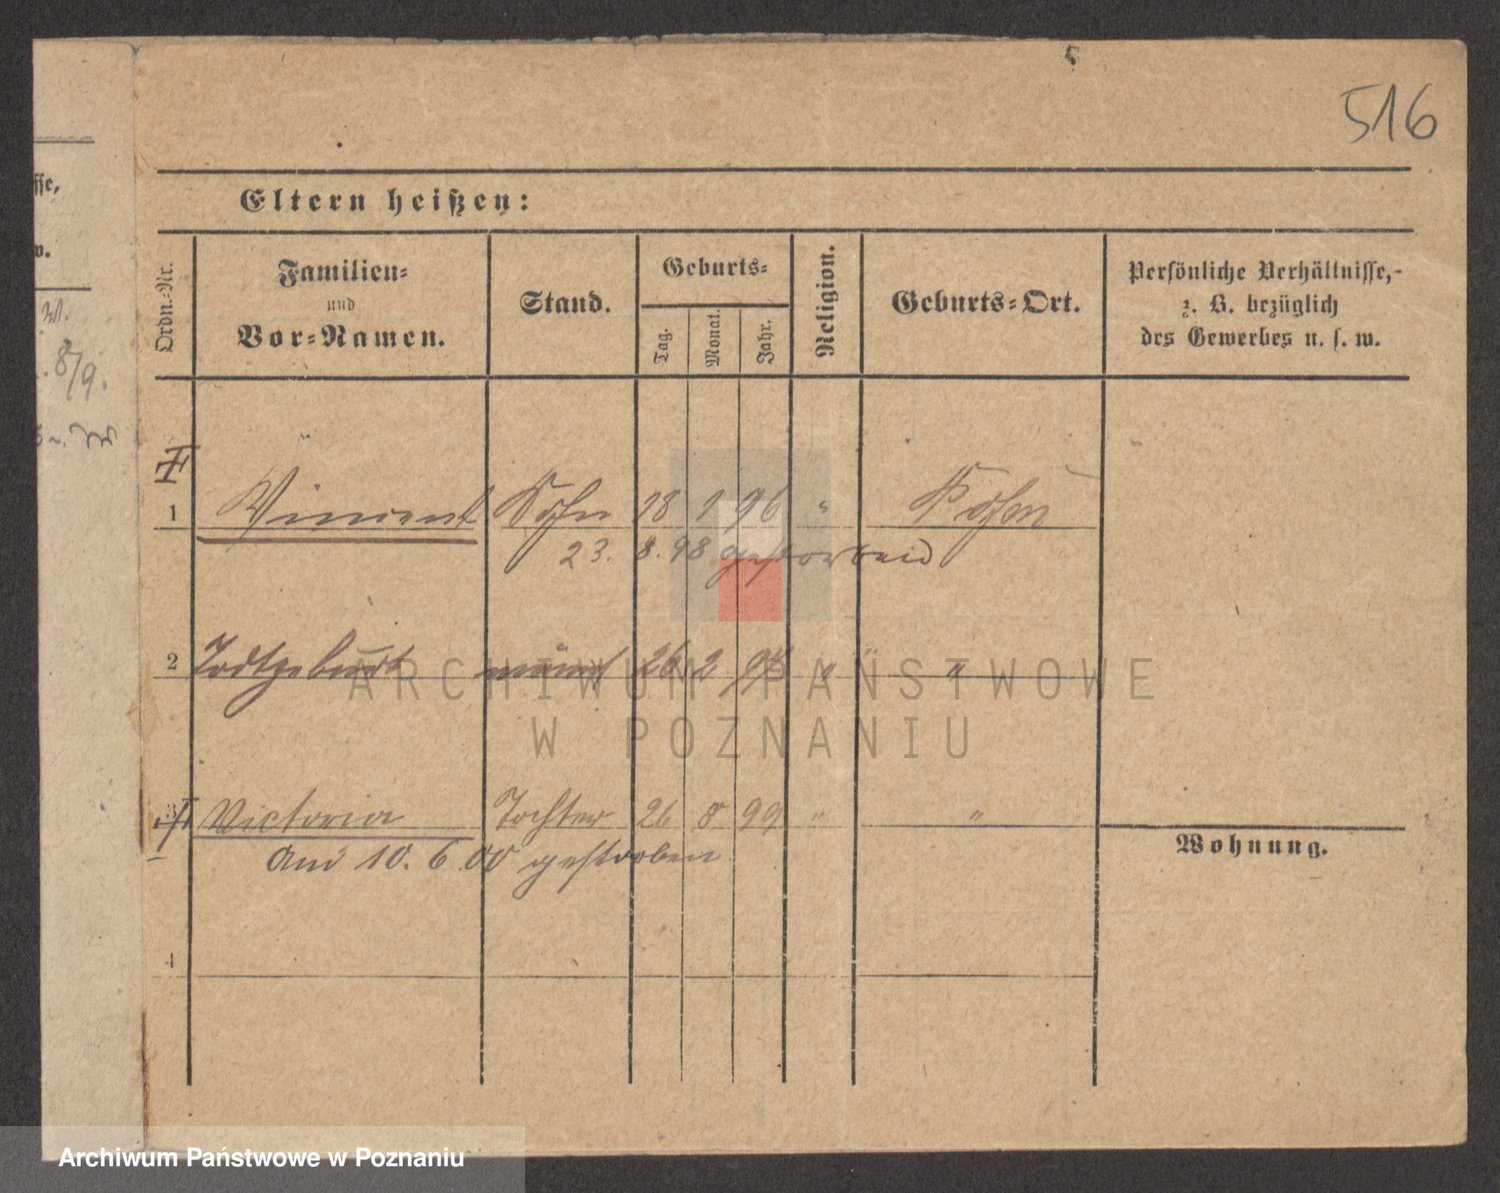 516
Eltern heißen:
Ordn.-Nr.
Familien- und Vor-Namen.
Stand.
Geburts-
Tag.
Monat.
Jahr.
Religion.
Geburts-Ort.
Persönliche Verhältnisse,-
z. B. bezüglich
des Gewerbes u. s. w.
sse,
w.
w.
8/9.
1 Vincent Sohn 18 1 96 " Posen
23. 8. 98 gestorben
2 Todtgeburt männl 26 2 97 " "
3 Victoria Tochter 26 8 99 " "
Am 10. 6. 00 gestorben
Wohnung.
4
ARCHIWUM PAŃSTWOWE
W POZNANIU
Archiwum Państwowe w Poznaniu